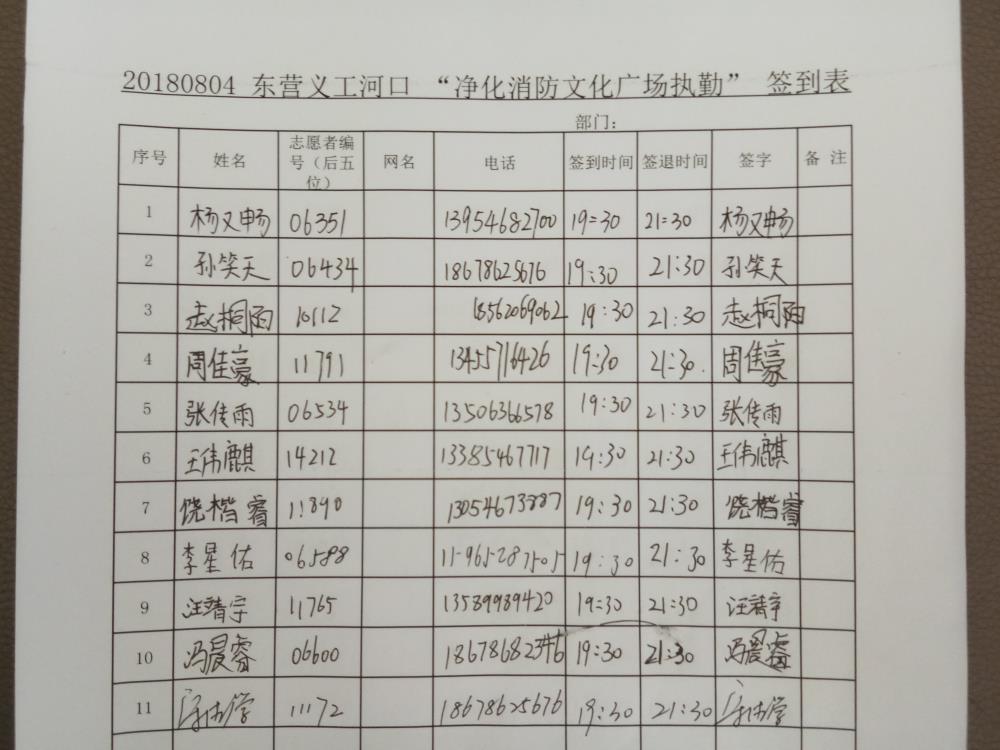 20180804 东营义工河口 “净化消防文化广场执勤” 签到表
部门:
序号 姓名 志愿者编号（后五位） 网名 电话 签到时间 签退时间 签字 备 注
1 杨又畅 06351 13954682700 19:30 21:30 杨又畅
2 孙笑天 06434 18678625676 19:30 21:30 孙笑天
3 赵桐雨 10112 18562069062 19:30 21:30 赵桐雨
4 周佳豪 11791 13455716426 19:30 21:30 周佳豪
5 张传雨 06534 13506366578 19:30 21:30 张传雨
6 王伟麒 14212 13385467717 19:30 21:30 王伟麒
7 饶楷睿 11890 13054673887 19:30 21:30 饶楷睿
8 李星佑 06588 15965287505 19:30 21:30 李星佑
9 汪靖宇 11765 13589989420 19:30 21:30 汪靖宇
10 冯晨睿 06600 18678682346 19:30 21:30 冯晨睿
11 11172 18678625676 19:30 21:30